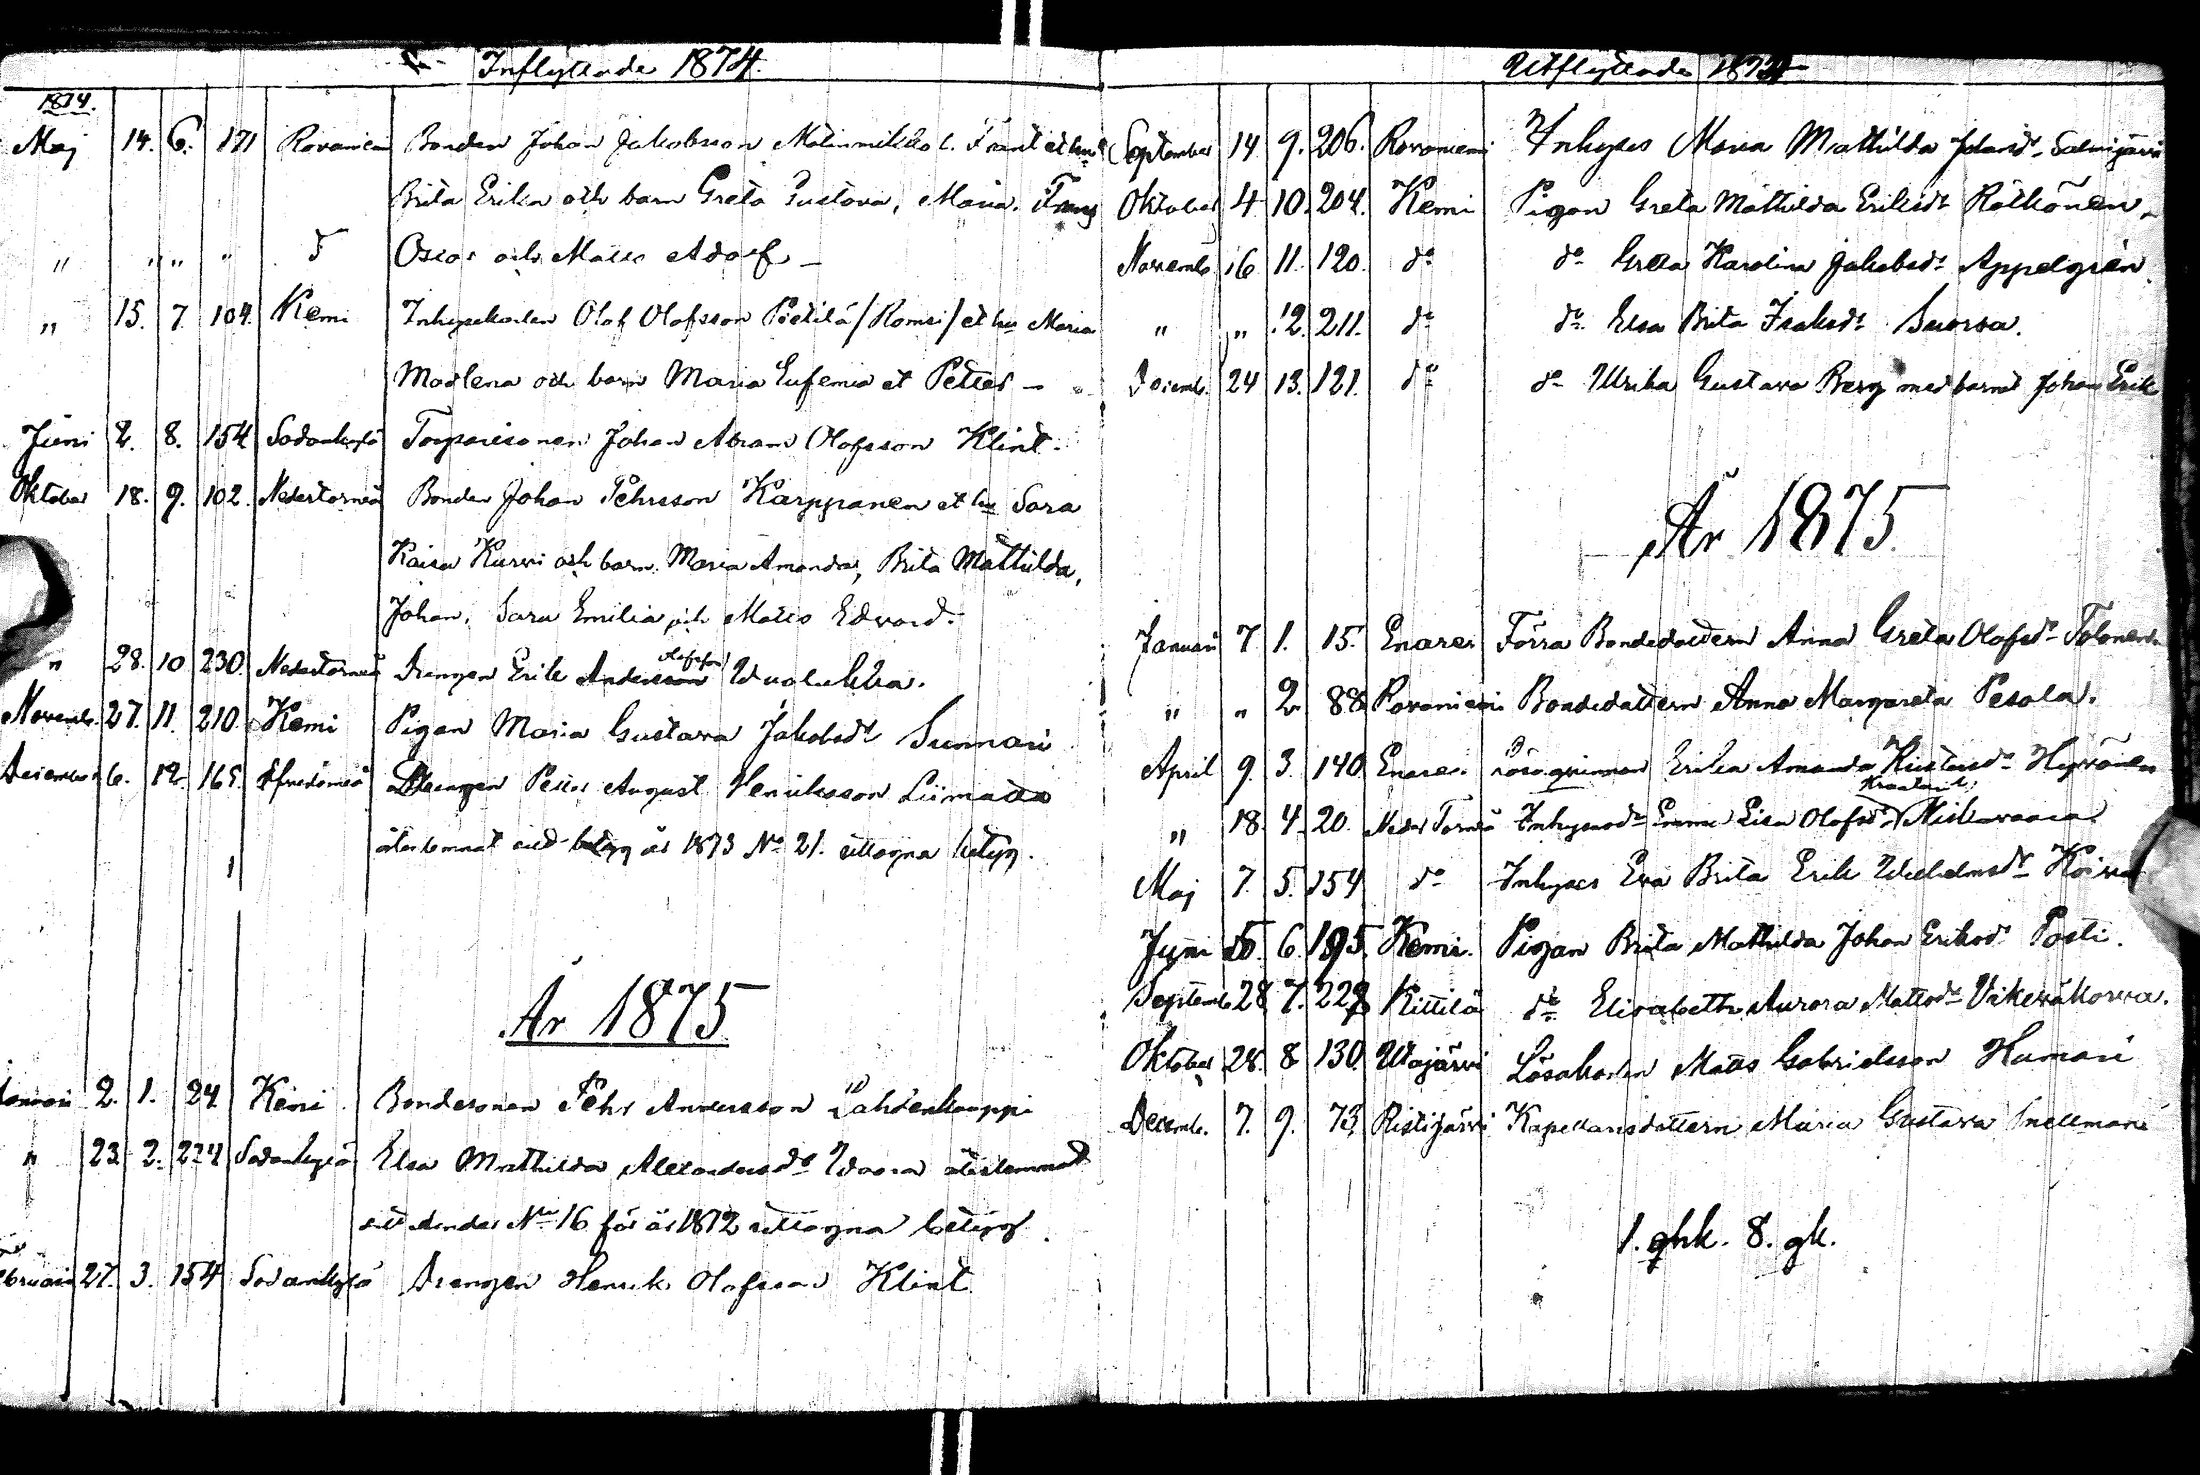 Inflyttade 1874.
1874.
Maj 14. 6. 171 Rovaniemi Bonden Johan Jakobsson Matinmikko l. Frant et hu
Brita Erika och barn Greta Gustava, Maria, Frans
" " " " d Oscar och Matts Adolf —
" 15. 7. 104. Kemi Inhyseskarlen Olof Olofsson Pietilä /Romsi/ et hu Maria
Madlena och barn Maria Eufemia et Petter —
Juni 2. 8. 154 Sodankylä Torparesonen Johan Abram Olofsson Klint.
Oktober 18. 9. 102. Nedertorneå Bonden Johan Pehrsson Karppanen et hu Sara
Kaisa Kurvi och barn Maria Amanda, Brita Mathilda,
Johan, Sara Emilia och Matts Edvard.
" 28. 10 230. Nedertorneå Drengen Erik Andersson Olofsson Vuolukka.
Novemb. 27. 11. 210. Kemi Pigan Maria Gustava Jakobsdr Sunnari
December 6. 12. 165. Öfvertorneå Drengen Petter August Henriksson Liimatta
återlemnat sitt betyg år 1873 No 21. uttagna betyg.
År 1875
Januari 2. 1. 24 Kemi Bondesonen Pehr Andersson Lahdenkauppi
" 23. 2. 224 Sodankylä Elsa Mathilda Alexandersdr Vaara återlemnat
sitt under No 16 för år 1872 uttagna betyg.
Februari 27. 3. 154 Sodankylä Drengen Henrik Olofsson Klint
Utflyttade 1874
September 14 9. 206. Rovaniemi Inhyses Maria Mathilda Johansdr Salmijärvi
Oktober 4 10. 204. Kemi Pigan Greta Mathilda Eriksdr Rätkönen.
Novemb. 16 11. 120. do do Greta Karolina Jakobsdr Appelgrén.
" " 12. 211. do do Elsa Brita Isaksdr Suorsa.
Decemb. 24 13. 121. do do Ulrika Gustava Berg med barnet Johan Erik
År 1875
Januari 7. 1. 15. Enare Förra Bondedottern Anna Greta Olofsdr Tolonen
" " 2 88 Rovaniemi Bondedottern Anna Margareta Pesola.
April 9. 3. 140 Enare. Erika Amanda Hyvönen
" 18. 4. 20. Neder Torneå Inhysesdr Emma Lisa Olofsdr Niskavaara
Maj 7. 5. 154 do Inhyses Eva Brita Erik Wilhelmsdr
Juni 6. 195. Kemi. Pigan Brita Mathilda Johan Eriksdr Posti.
Septemb. 28 7. 228 Kittilä do Elisabeth Aurora Mattsdr
Oktober 28. 8 130. Utajärvi Lösakarlen Matts Gabrielsson Hamari
Decemb. 7. 9. 73. Ristijärvi Kapellansdottern Maria Gustava Snellman
1. ghk. 8. gk.